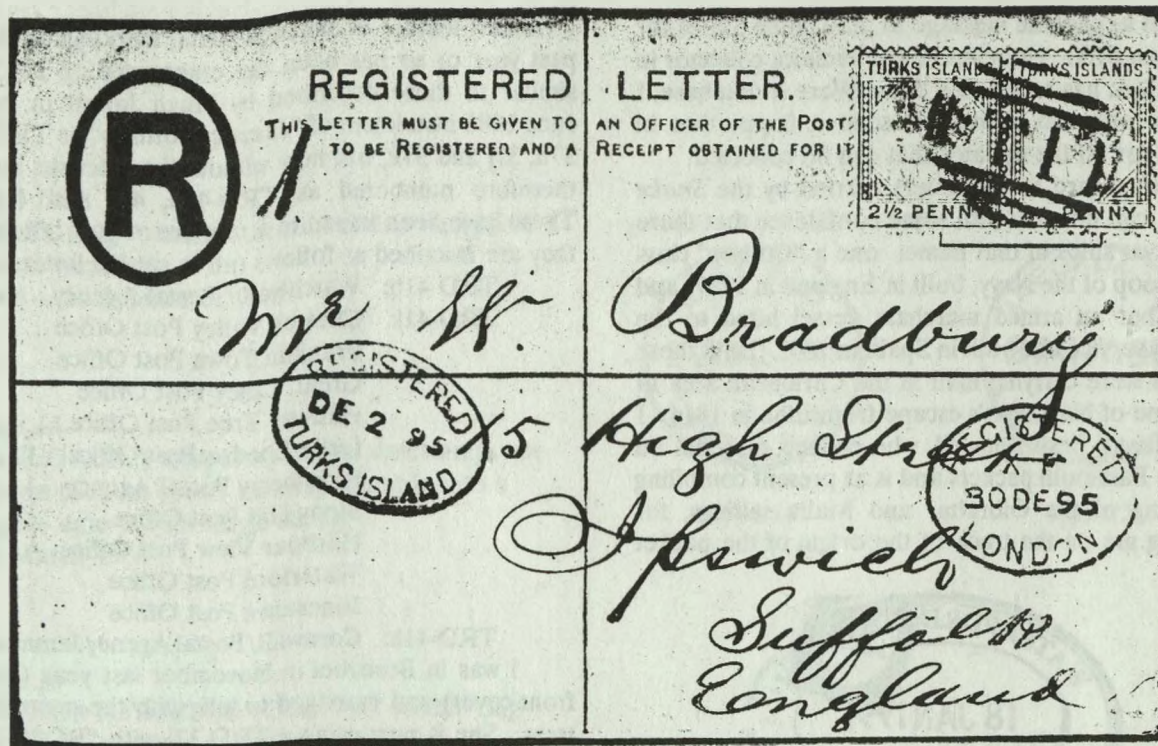 REGISTERED LETTER.
THIS LETTER MUST BE GIVEN TO AN OFFICER OF THE POST
TO BE REGISTERED AND A RECEIPT OBTAINED FOR IT
R
TURKS ISLANDS TURKS ISLANDS
2½ PENNY PENNY
Mr W. Bradbury
REGISTERED
DE 2 95
TURKS ISLAND
15 High Street
REGISTERED
30 DE 95
LONDON
Ipswich
Suffolk
England